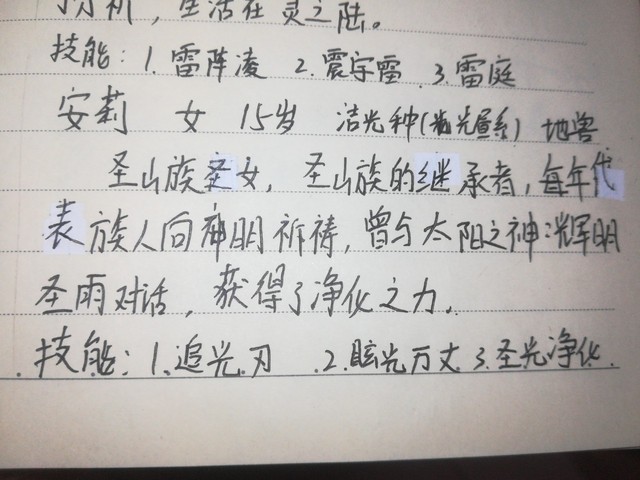 生活在灵之陆。
技能：1.雷阵凌 2.震宇雷 3.雷庭
安莉 女 15岁 洁光种(光属系) 地兽
圣山族圣女，圣山族的继承者，每年代
表族人向神明祈祷，曾与太阳之神：辉明
圣雨对话，获得了净化之力。
技能：1.追光刃 2.眩光万丈 3.圣光净化.